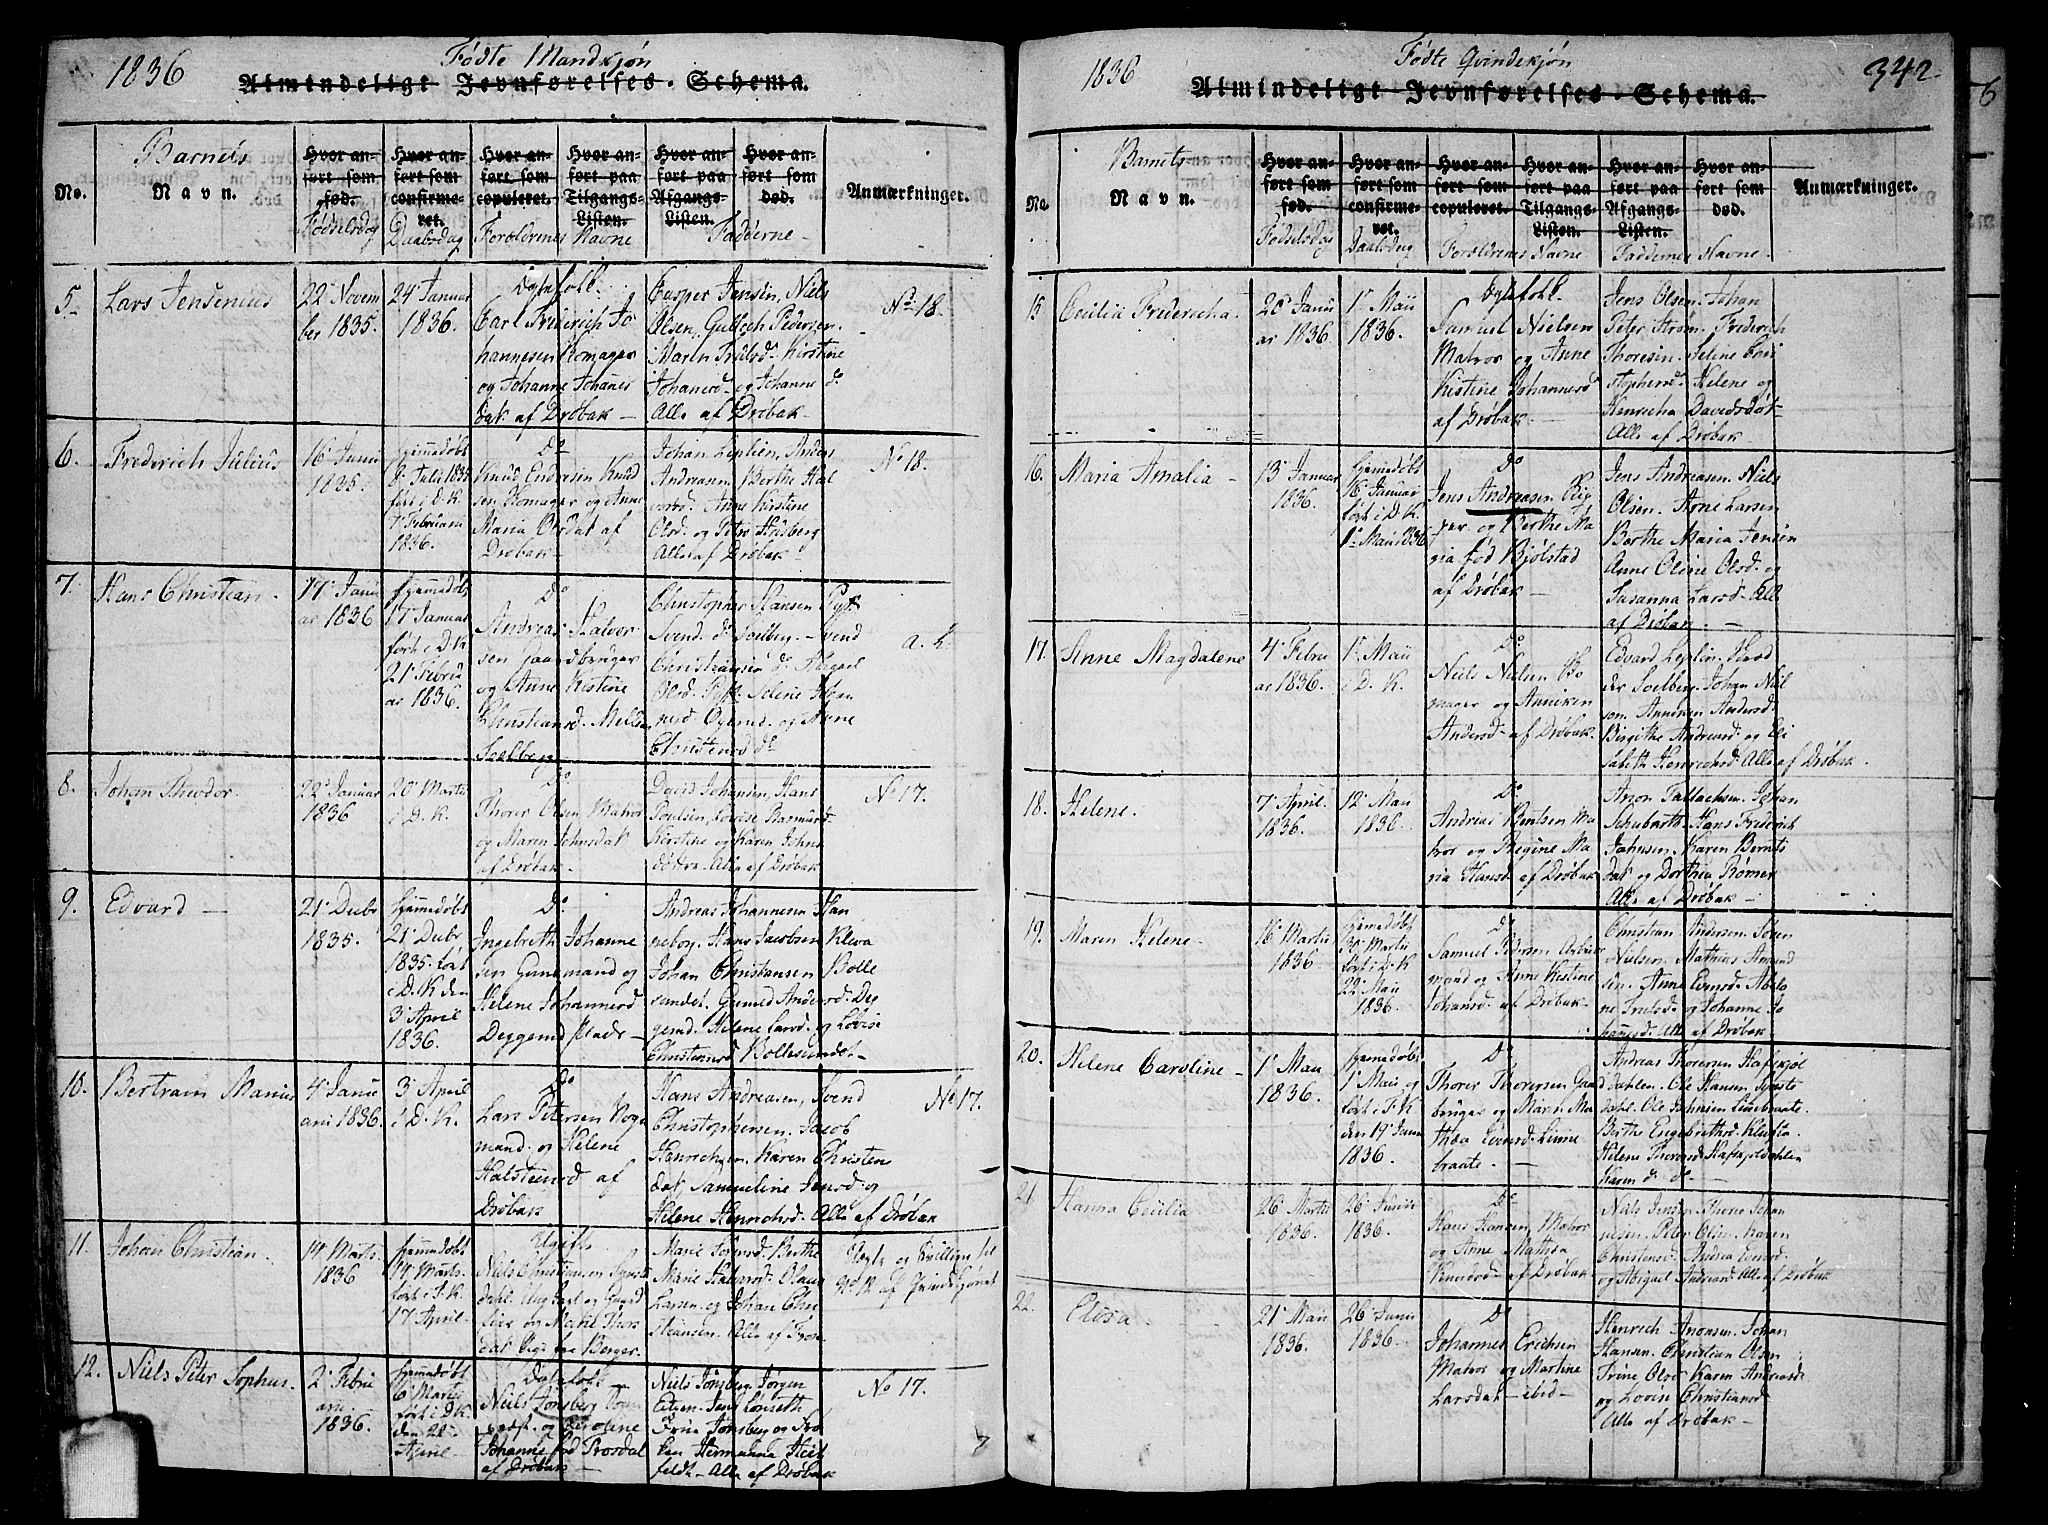 1836
Fødte Mandkjøn
Almindeligt Jevnførelses-Schema.
No.
Barnets
Navn.
Hvor anført som fød.
Fødselsdag
Hvor anført som confirmeret.
Daabsdag
Hvor anført som copuleret.
Hvor anført paa Tilgangs-Listen.
Forældrenes Navne
Hvor anført paa Afgangs-Listen.
Hvor anført som død.
Fadderne
Anmærkninger.
5.
Lars Jensenius
22 Novem
ber 1835.
24 Januar
1836.
Ægtefolk.
Carl Frederich Jo
hannesen Komager
og Johanne Johanes
dat. af Drøbak
Casper Jensen, Niels
Olsen, Pedersen
Maren Trulsd. Kirstine
Johansd. og Johanne do
Alle af Drøbak
No 18.
6.
Frederich Julius
16 Juni
1835.
hjemmedøbt
8 Juli 1835
ført i D. K.
7 Februari
1836.
Do
Knud Endresen Knud
sen Komager og Anne
Maria Olsdat af
Drøbak
Johan Leplien, Anders
Andreasen, Berthe Hal
vorsd. Anne Kirstine
Olsd. og
Alle af Drøbak
No 18.
7.
Hans Christian.
14 Janu
ar 1836
hjemmedøbt
17 Januar
ført i D. K
21 Febru
ar 1836.
Do
Andreas Halvor
sen Gaardbruger
og Anne Kistine
Christiansd. Mellem
Soelberg
Christopher Hansen
Svend do Soelberg. Svend
Christiansen do Abigael
Olsd. Selene Johan
nesd. og Anne
Christensd do
8.
Johan Theodor.
22 Januar
1836
20 Martii
i D. K.
Do
Thorer Olsen Matros
og Maren Johnsdat
af Drøbak.
David Johansen, Hans
Poulsen, Lovise Rasmusd.
Kirstine og Karen Johns
døttre. Alle af Drøbak
No 17.
9.
Edvard
21 Decbr
1835.
hjemmedøbt
21 Decbr
1835. ført
i D. K den
3 April
1836.
Do
Ingebreth Johanne
sen Huusmand og
Helene Johannesd
Deggerud Plads
Andreas Johannesen Han
neborg. Hans Jacobsen Kleva
Johan Christiansen Bolle
sundet. Andersd. Deg
gerud. Helene Larsd. og Lovise
Christensd Bollesundet
10.
Bertram Marius
4 Janu
ari 1836.
3 April
i D. K.
Do
Lars Petersen
mand. og Helene
Halsteensd af
Drøbak
Hans Andreasen, Svend
Christophersen. Jacob
Henrichsen, Karen Christens
dat, Samueline Jensd. og
Helene Henrichsd. Alle af Drøbak
No 17.
11.
Johan Christian.
14 Marts.
1836
hjemmedøbt
14 Marts.
ført i F. K.
17 April
Ugifte
Niels Christiansen
dahl. Ungkarl og Gaard
og Marie Thors
dat Pige fra Berger.
Marie Sørensd. Berthe
Marie Halvorsd. Olaus
Larsen. og Johan Chri
stiansen. Alle af
Uægte og Tvilling til
No 12 af Qvindekjønet
12.
Niels Peter Sophus.
2 Febru
ari.
1836.
hjemmedøbt
6 Martii
ført i D. K.
April
Ægtefolk
Niels Jonsberg
og Caroline
Johanne fød Trosdal
af Drøbak
Niels Jonsberg, Jørgen
Eilsen. Jens
Trine Jonsberg
Hermanna Heit
feldt. Alle af Drøbak
No 17.
1836
Fødte Qvindekjøn
342.
Almindeligt Jevnførelses-Schema.
No.
Barnets
Navn.
Hvor anført som fød.
Fødselsdag
Hvor anført som confirmeret.
Daabsdag
Hvor anført som copuleret.
Hvor anført paa Tilgangs-Listen.
Forældrenes Navne
Hvor anført paa Afgangs-Listen.
Hvor anført som død.
Faddernes Navne.
Anmærkninger.
15
Cecilia Fredericha.
20 Janu
ar 1836.
1 Maii
1836.
Ægtefolk.
Samuel Nielsen
Matros og Anne
Kistine Johannesd
af Drøbak
Jens Olsen. Johan
Peter Strøm. Frederich
Thoresen. Seline Chri
stophersd. Helene og
Henricha Davidsdøt.
Alle af Drøbak
16.
Maria Amalia
13 Januar
1836.
hjemmedøbt
16 Januar
ført i D. K.
1 Maii 1836
Do
Jens Andreasen Rig
ger og Berthe Ma
ria fød Bjølstad
af Drøbak
Jens Andreasen. Niels
Olsen. Arne Larsen
Berthe Maria Jensen
Anne Oline Olsd. og
Susanna Larsd. Alle
af Drøbak.
17.
Anne Magdalene
4 Febru
ar 1836.
1 Maii
i D. K.
Do
Niels Nielsen Ko
mager og Anniken
Andersd af Drøbak.
Edvard Leplin.
Soelberg. Johan Niel
sen. Anniken Andersd.
Birgithe Andreasd. og Eli
sabeth Henrichsd. Alle af Drøbak.
18.
Helene.
7 April.
1836.
12 Maii
1836.
Do
Andreas Bentsen Ma
tros og Regine Ma
ria Hansd af Drøbak
Aron Tallachsen. Johan
Schubarth. Hans Frederich
Jahnsen. Karen Bernts
dat og Dorthea Rømer
Alle af Drøbak
19.
Maren Helene.
16 Martii
1836.
hjemmedøbt
30 Martii
ført i D. K
22 Maii
1836.
Do
Samuel Pedersen Arbeids
mand og Anne Kistine
Johansd. af Drøbak
Christian Andersen. Søren
Nielsen. Mathias Amund
sen. Anne Evensd. Abelo
ne Trulsd. og Johanne Jo
hannesd. Alle af Drøbak
20.
Helene Caroline
1 Maii
1836.
hjemmedøbt
1 Maii og
ført i F. K
den 19 Juni
1836.
Do
Thorer Thoresen Gaard
bruger og Maren Ma
thea Evensd. Linne
braate.
Andreas Thoresen Haftkjøl
dahlen. Ole Hansen
dahl. Ole Johnsen Linnebraate.
Berthe Engebrethsd.
Helene Thoresd. Haftkjøldahlen
Karen do do
21
Hanna Cecilia
26 Martii
1836.
26 Junii
1836.
Do
Hans Hansen, Matros
og Anne Mathea
Knudsd af Drøbak
Niels Jensen. Thore Johan
nesen. Peter Olsen. Karen
Christensd. Andrea Evensd.
og Abigael Andreasd. Alle af Drøbak
22.
Elosa.
21 Maii
1836.
26 Junii
1836.
Do
Johannes Erichsen
Matros og Martine
Larsdat ibid
Henrich Aronsen. Johan
Hansen. Christian Olsen
Trine Olsd Karen Andreasd
og Lovise Christiansd
Alle af Drøbak